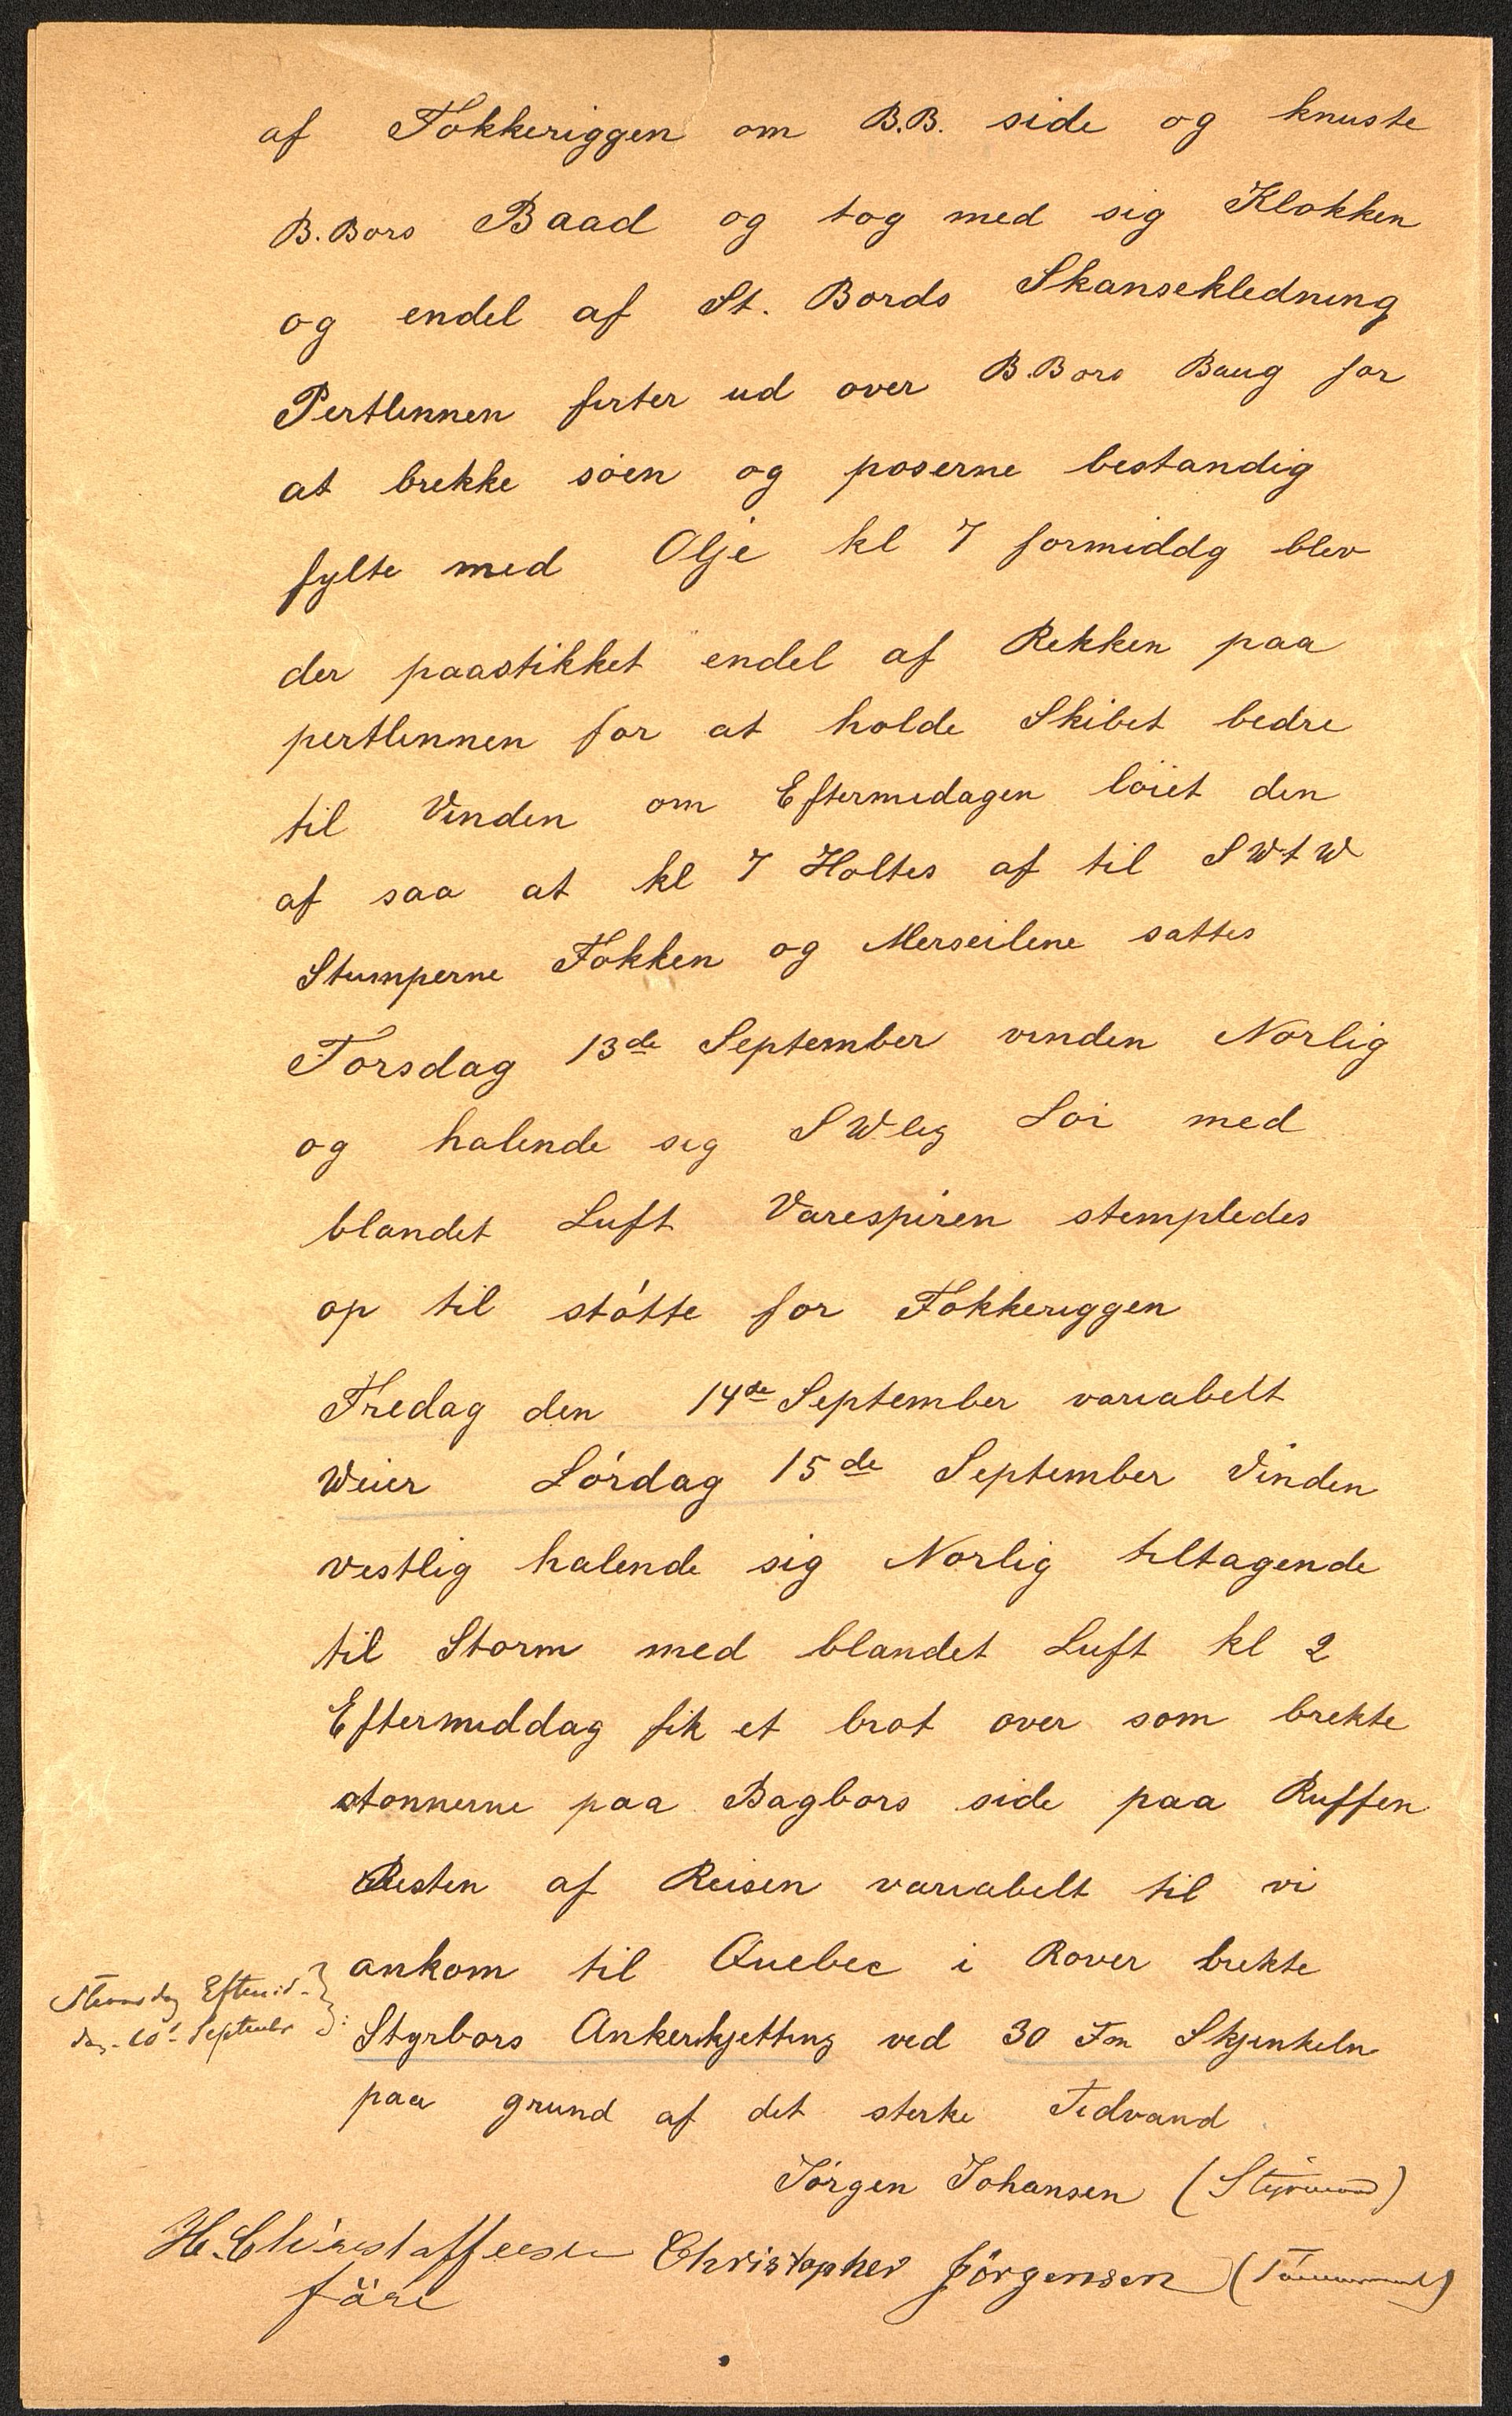 af Fokkeriggen om B.B. side og knuste
B. Bors Baad og tog med sig Klokken
og endel af St. Bords Skansekledning
Pertlinnen firter ud over B. Bors Baug for
at brekke söen og poserne bestandig
fylte med Olje kl 7 formiddg blev
der paastikket endel af Rekken paa
pertlinnen for at holde Skibet bedre
til Vinden om Eftermedagen löiet den
af saa at kl 7 Holtes af til S W t W
Stumperne Fokken og Merseilene sattes
Torsdag 13de September vinden Norlig
og halende sig S W lig Loi med
blandet Luft Varespiren stempledes
op til stötte for Fokkeriggen
Fredag den 14de September variabelt
Weier Lördag 15de September Vinden
vestlig halende sig Norlig tiltagende
til Storm med blandet Luft kl 2
Eftermiddag fik et brot over som brekte
stonnerne paa Bagbors side paa Ruffen
Resten af Reisen variabelt til vi
ankom til Quebec i Rover brekte
Septembr
Styrbors Ankerkjetting ved 30 Fm Skjenkeln
paa grund af det sterke Tidvand
Jörgen Johansen (Styrmand)
H. Christoffersen Christopher Jörgensen (Tömmermand)